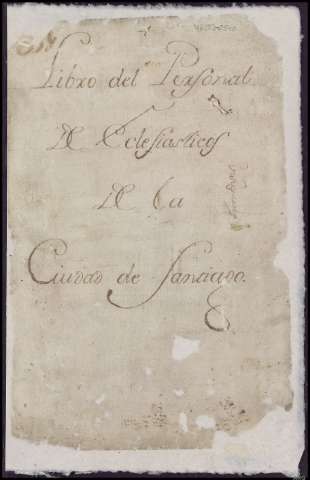 Libro del Personal
de Eclesiasticos
de la
Ciudad de Santiago.